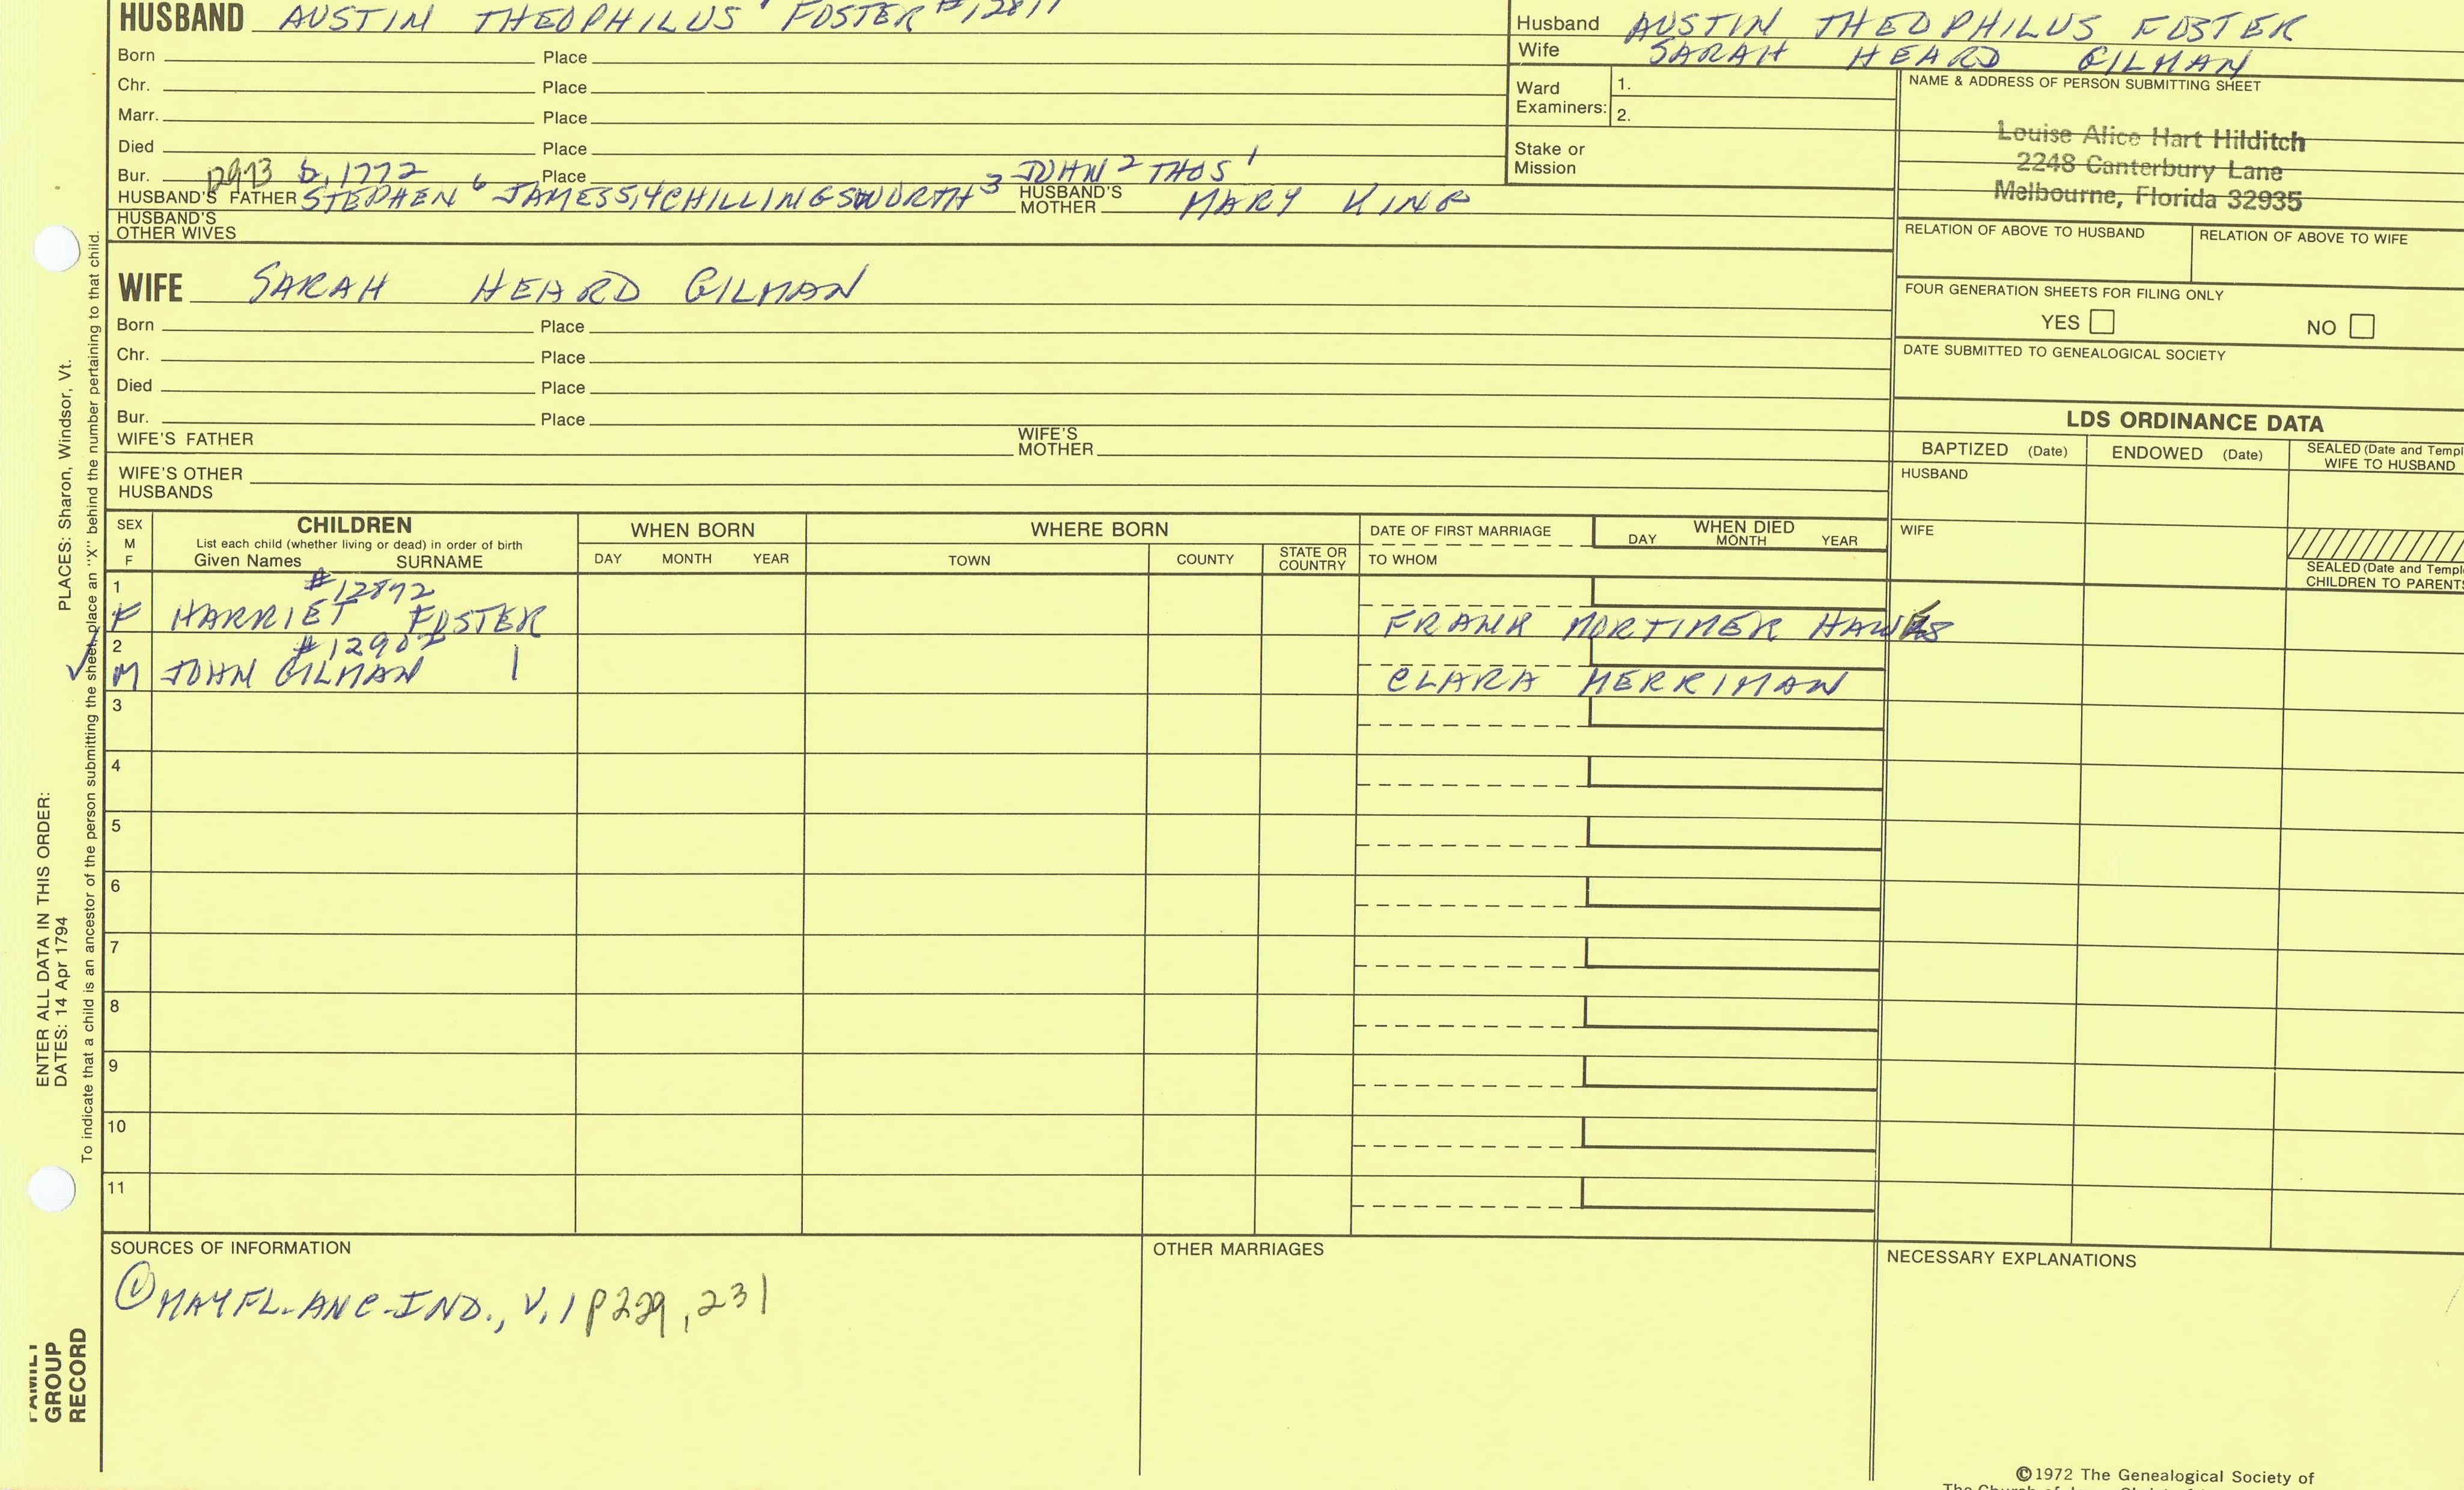 HUSBAND AUSTIN THEOPHILUS FOSTER
Born Place
Chr. Place
Marr. Place
Died Place
Bur. Place
pg93 b, 1772
JOHN 2 THOS 1
HUSBAND'S FATHER STEPHEN 6 JAMES5,4CHILLINGSWORTH 3 HUSBAND'S MOTHER MARY KING
HUSBAND'S OTHER WIVES
Husband AUSTIN THEOPHILUS FOSTER
Wife SARAH HEARD GILMAN
Ward Examiners: 1.
2.
Stake or Mission
NAME & ADDRESS OF PERSON SUBMITTING SHEET
Louise Alice Hart Hilditch
2248 Canterbury Lane
Melbourne, Florida 32935
RELATION OF ABOVE TO HUSBAND RELATION OF ABOVE TO WIFE
FOUR GENERATION SHEETS FOR FILING ONLY
YES NO
DATE SUBMITTED TO GENEALOGICAL SOCIETY
WIFE SARAH HEARD GILMAN
Born Place
Chr. Place
Died Place
Bur. Place
WIFE'S FATHER WIFE'S MOTHER
WIFE'S OTHER HUSBANDS
LDS ORDINANCE DATA
BAPTIZED (Date) ENDOWED (Date) SEALED (Date and Templ
WIFE TO HUSBAND
HUSBAND
WIFE
SEALED (Date and Templ
CHILDREN TO PARENTS
SEX M F
CHILDREN
List each child (whether living or dead) in order of birth
Given Names SURNAME
WHEN BORN
DAY MONTH YEAR
WHERE BORN
TOWN COUNTY STATE OR COUNTRY
DATE OF FIRST MARRIAGE
TO WHOM
WHEN DIED
DAY MONTH YEAR
1 #12892
F HARRIET FOSTER FRANK MORTIMER HAWKS
2
M JOHN GILMAN CLARA MERRIMAN
3
4
5
6
7
8
9
10
11
SOURCES OF INFORMATION
① MAYFL-ANC-IND., V.1 P229, 231
OTHER MARRIAGES
NECESSARY EXPLANATIONS
©1972 The Genealogical Society of
PLACES: Sharon, Windsor, Vt.
To indicate that a child is an ancestor of the person submitting the sheet, place an "X" behind the number pertaining to that child.
ENTER ALL DATA IN THIS ORDER:
DATES: 14 Apr 1794
FAMILY
GROUP
RECORD